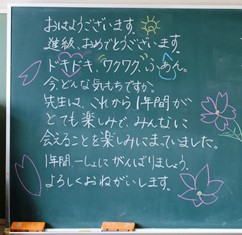 おはようございます。
進級、おめでとうございます。
ドキドキ、ワクワク、ふあん。
今、どんな気もちですか。
先生は、これから1年間が
とても楽しみで、みんなに
会えることを楽しみにまっていました。
1年間一しょにがんばりましょう。
よろしくおねがいします。